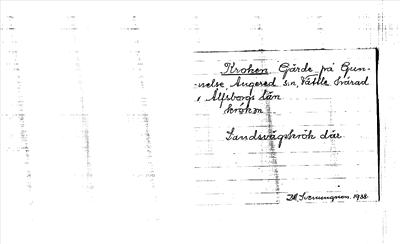 Kroken Gärde på Gun-
nelse, Angered sn, Vättle härad
i Älfsborgs län
krókən
Landsvägskrök där
1938